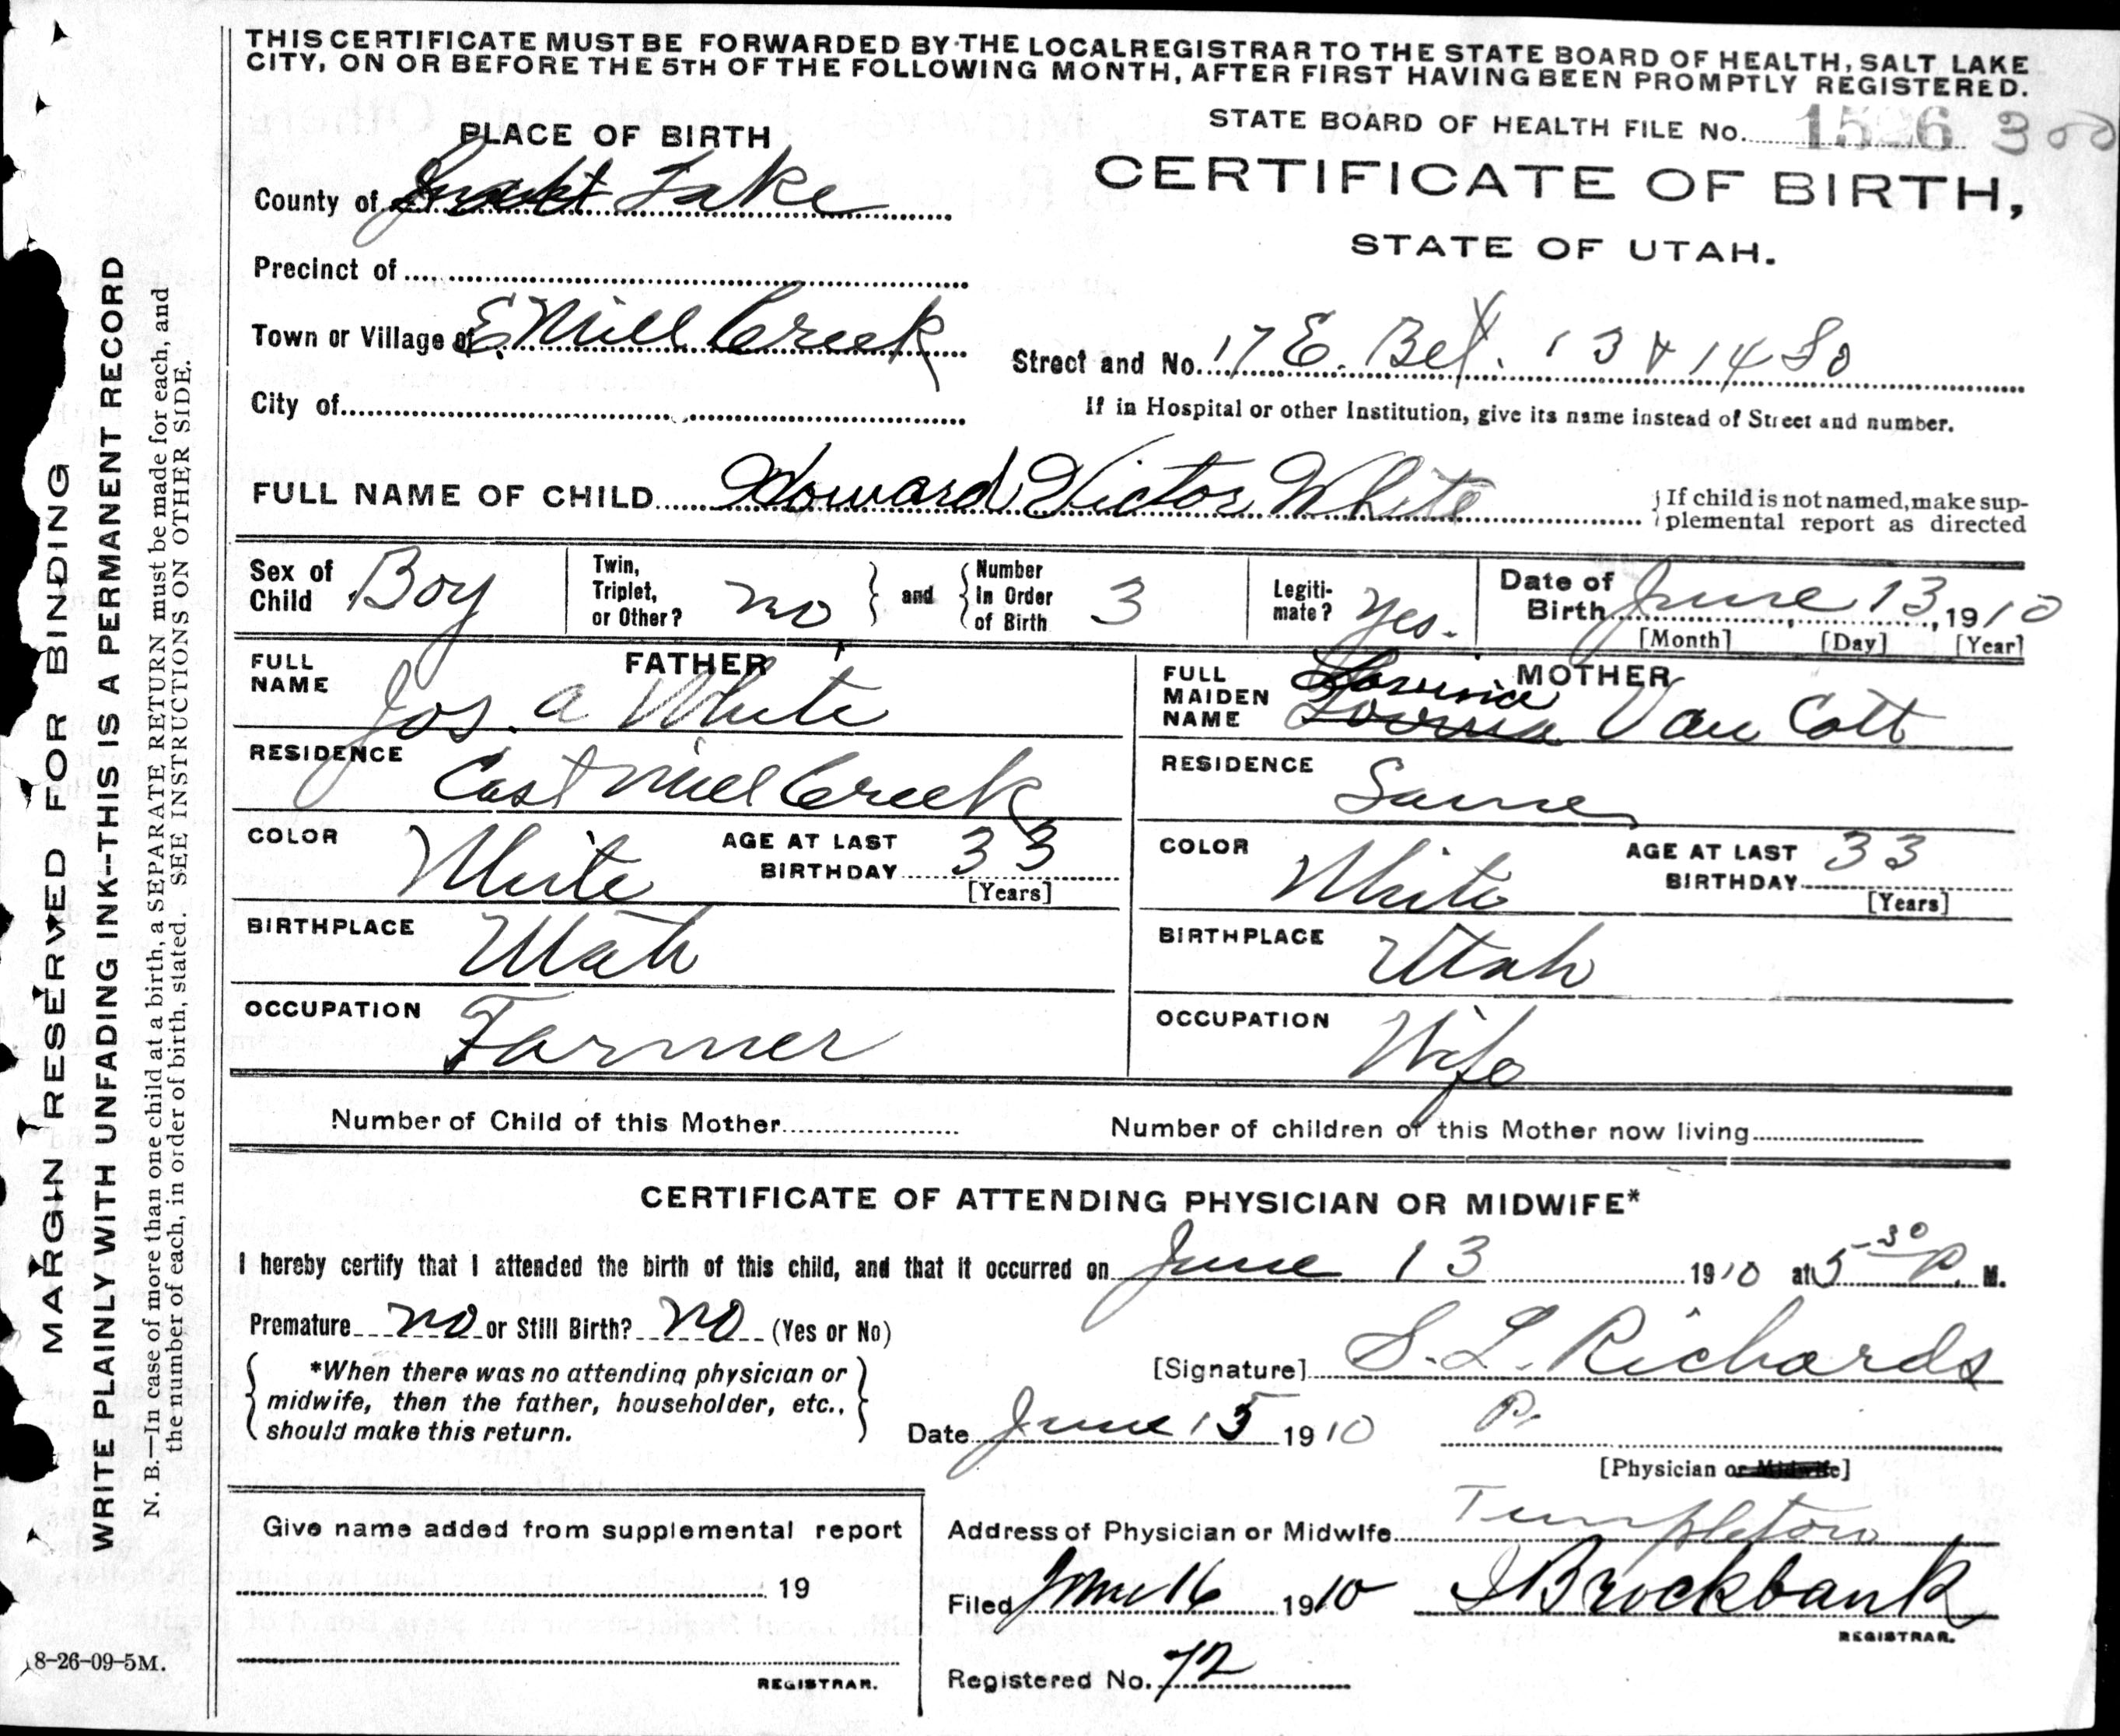 THIS CERTIFICATE MUST BE FORWARDED BY THE LOCAL REGISTRAR TO THE STATE BOARD OF HEALTH, SALT LAKE
CITY, ON OR BEFORE THE 5TH OF THE FOLLOWING MONTH, AFTER FIRST HAVING BEEN PROMPTLY REGISTERED.
STATE BOARD OF HEALTH FILE No. 1526 300
PLACE OF BIRTH
CERTIFICATE OF BIRTH,
STATE OF UTAH.
County of Salt Lake
Precinct of
Town or Village of E Mill Creek
Street and No. 17 E. Bet. 13 & 14 So
City of
If in Hospital or other Institution, give its name instead of Street and number.
FULL NAME OF CHILD Howard Victor White
If child is not named, make sup-
plemental report as directed
Sex of Child Boy
Twin, Triplet, or Other? no and Number In Order of Birth 3
Legiti-mate? Yes.
Date of Birth June 13, 1910
[Month] [Day] [Year]
FATHER
FULL NAME Jos. A White
RESIDENCE East Mill Creek
COLOR White AGE AT LAST BIRTHDAY 33
[Years]
BIRTHPLACE Utah
OCCUPATION Farmer
MOTHER
FULL MAIDEN NAME Van Cott
RESIDENCE Same
COLOR White AGE AT LAST BIRTHDAY 33
[Years]
BIRTHPLACE Utah
OCCUPATION Wife
Number of Child of this Mother
Number of children of this Mother now living
CERTIFICATE OF ATTENDING PHYSICIAN OR MIDWIFE*
I hereby certify that I attended the birth of this child, and that it occurred on June 13 1910 at 5-30 P. M.
Premature no or Still Birth? no (Yes or No)
*When there was no attending physician or
midwife, then the father, householder, etc.,
should make this return.
[Signature] S. L. Richards
Date June 15 1910 P.
[Physician or Midwife]
Address of Physician or Midwife Templeton
Filed June 16 1910 I Brockbank
REGISTRAR.
Registered No. 72
Give name added from supplemental report
19
REGISTRAR.
8-26-09-5M.
MARGIN RESERVED FOR BINDING
WRITE PLAINLY WITH UNFADING INK--THIS IS A PERMANENT RECORD
N. B.—In case of more than one child at a birth, a SEPARATE RETURN must be made for each, and
the number of each, in order of birth, stated. SEE INSTRUCTIONS ON OTHER SIDE.